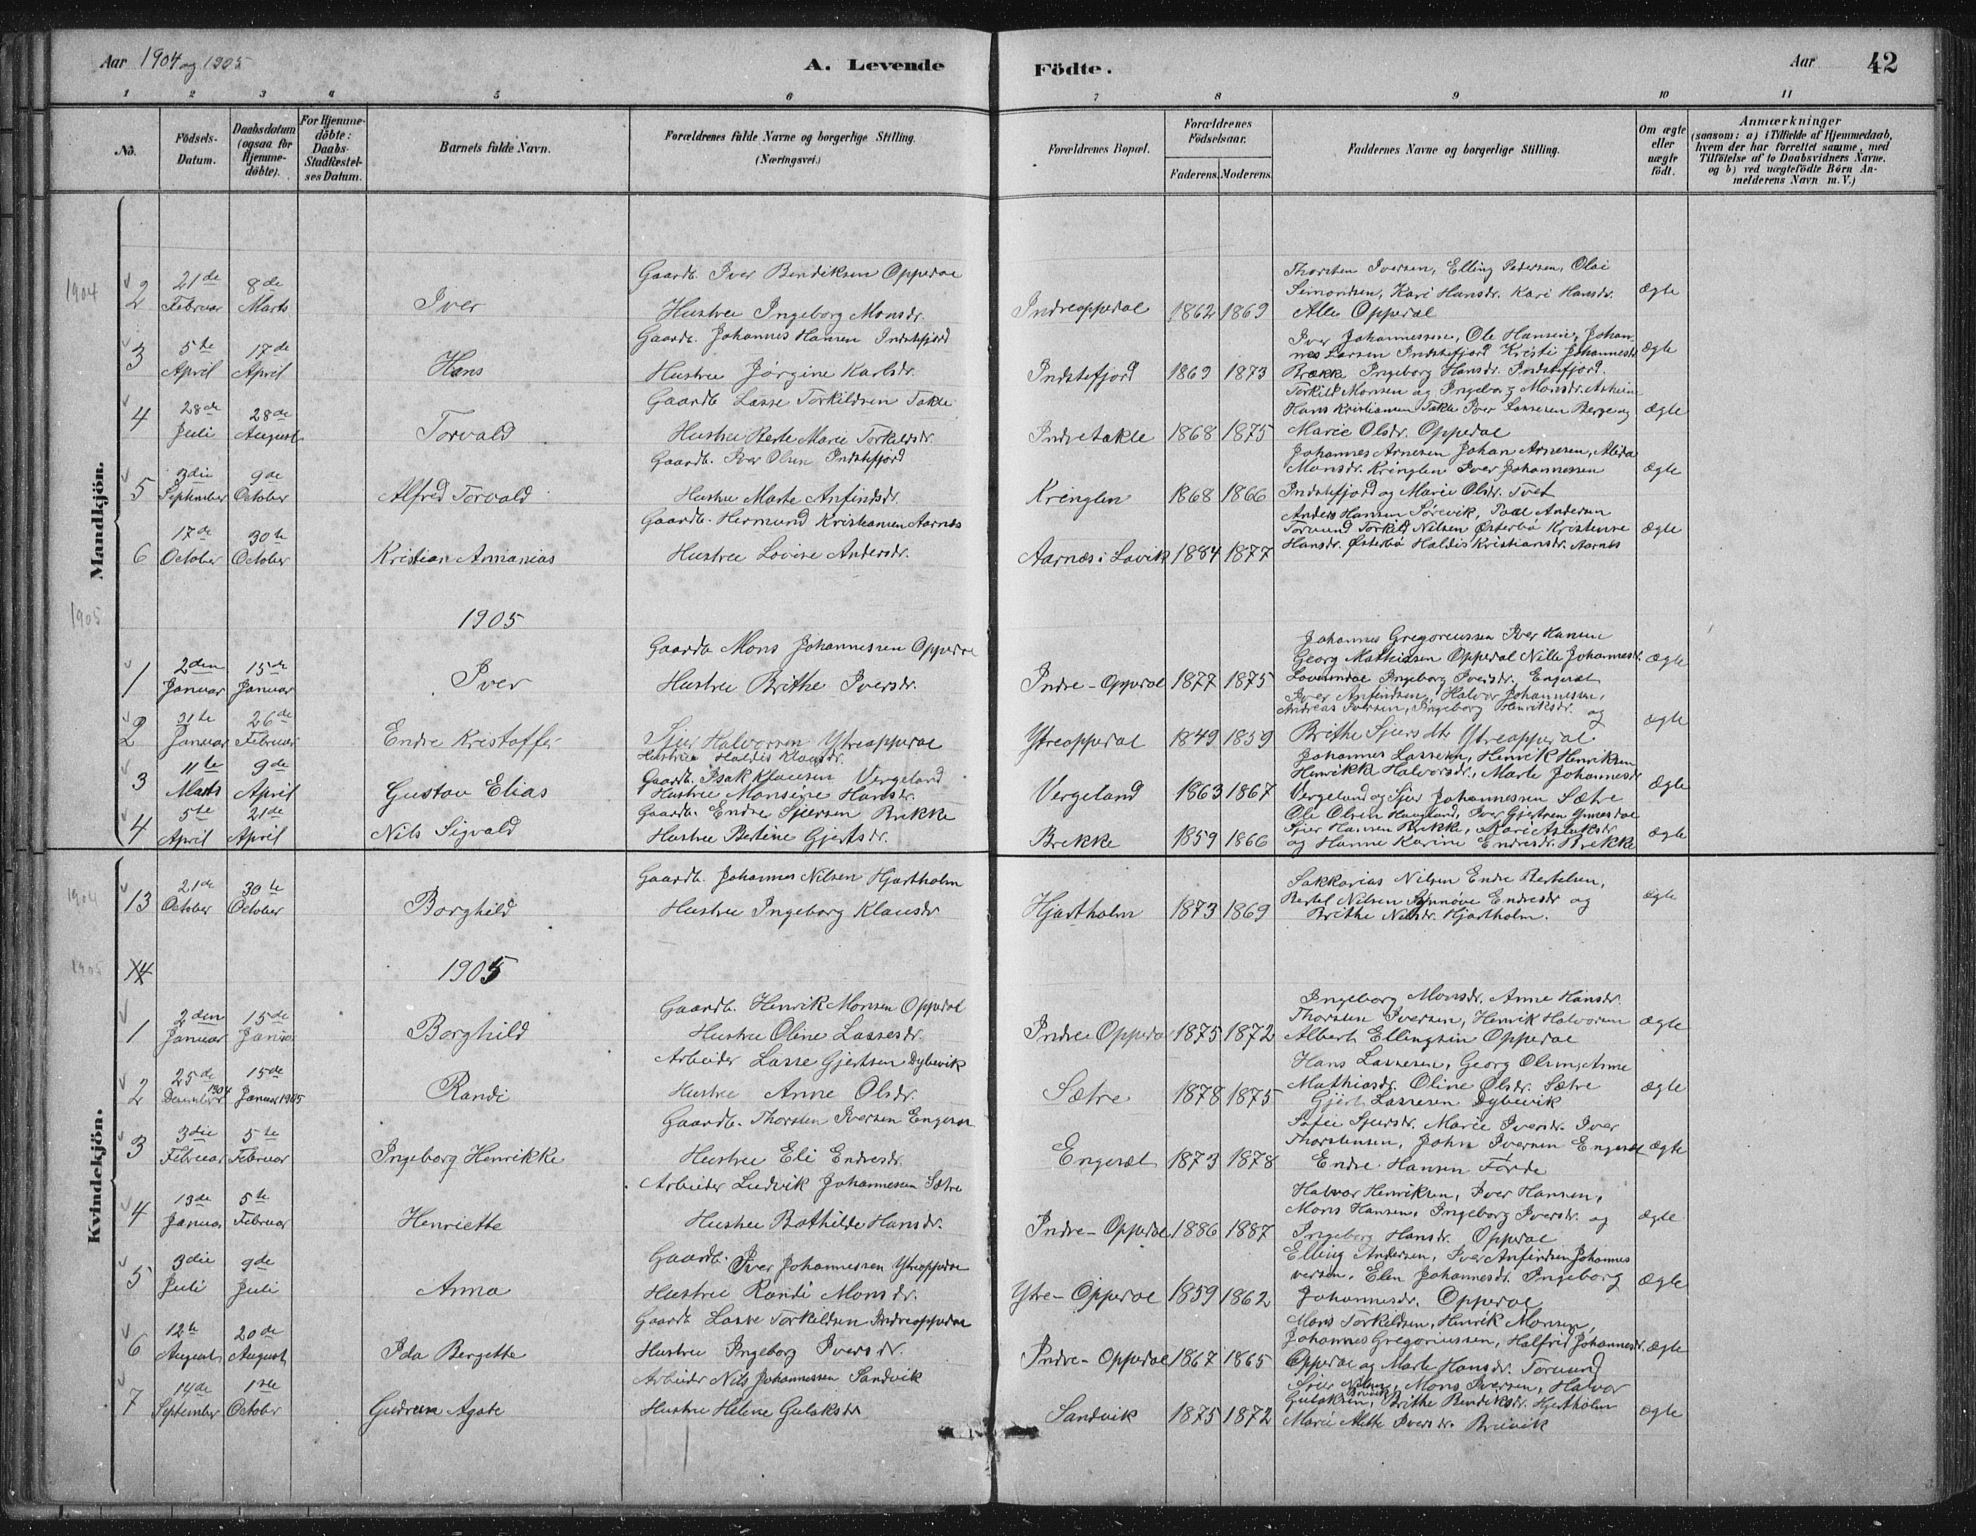 Aar 1904 og 1905
A. Levende
Födte.
Aar
42
1 2 3 4 5 6 7 8 9 10 11
No.
Födsels-Datum.
Daabsdatum (ogsaa for Hjemme-döbte).
For Hjemme-döbte: Daabs-Stadfæstel-ses Datum.
Barnets fulde Navn.
Forældrenes fulde Navne og borgerlige Stilling.
(Næringsvei.)
Forældrenes Bopæl.
Forældrenes Födselsaar.
Faderens. Moderens.
Faddernes Navne og borgerlige Stilling.
Om ægte eller uægte födt.
Anmærkninger
(saasom: a) i Tilfælde af Hjemmedaab,
hvem der har forrettet samme, med
Tilföielse af to Daabsvidners Navne.
og b) ved uægtefödte Börn An-
melderens Navn m. V.)
Mandkjön.
1904
2 21de Februar 8de Marts Iver
Gaardb. Iver Bendiksen Oppedal
Hustru Ingeborg Monsdr.
Indreoppedal 1862 1869
Thorsten Iversen, Elling Pedersen, Olai
Simonsen, Kari Hansdr. Kari Hansdr.
Alle Oppedal
ægte
3 5te April 17de April Hans
Gaardb. Johannes Hansen Indstefjord
Hustru Jørgine Karlsdr.
Indstefjord 1869 1873
Iver Johannessen, Ole Hansen, Johan
nes Larsen Indstefjord Kristi Johannesdr
Brække Ingeborg Hansdr. Indstefjord.
ægte
4 28de Juli 28de August Torvald
Gaardb. Lasse Torkildsen Takle
Hustru Berte Marie Torkildsdr.
Indretakle 1868 1875
Torkild Monsen og Ingeborg Monsdr. Asheim
Hans Kristiansen Takle Iver Lassesen Berge og
Marie Olsdr. Oppedal
ægte
5 3die September 9de October Alfred Torvald
Gaardb. Iver Olsen Indstefjord
Hustru Marte Anfindsdr.
Kringlen 1868 1866
Johannes Arnesen Johan Arnesen, Alida
Monsdr. Kringlen Iver Johannessen
Indstefjord og Marie Olsdr. Tvet
ægte
6 17de October 30te October Kristian Annanias
Gaardb. Hermund Kristiansen Aarnæs
Hustru Lovise Andersdr.
Aarnæs i Lavik 1884 1877
Anders Hansen Sørevik, Paul Andersen
Torvund Torkild Nilsen Østerbø Kristense
Hansdr. Østerbø Haldis Kristiansdr. Aarnæs
ægte
1905
1905
1 2den Januar 15de Januar Iver
Gaardb Mons Johannessen Oppedal
Hustru Brithe Iversdr.
Indre-Oppedal 1877 1875
Johannes Gregoreussen Iver Hansen
Georg Mathiasen Oppedal Nille Johannesdr.
Ingeborg Iversdr. Engesæt
ægte
2 31te Januar 26de Februar Endre Kristoffer
Sjur Halvorsen Ytreoppedal
Hustru Haldis Klausdr.
Ytreoppedal 1849 1859
Iver Anfindsen, Halvor Johannessen,
Andreas Iversen, Ingeborg Henriksdr. og
Brithe Sjursdtr Ytreoppedal
ægte
3 11te Marts 9de April Gustav Elias
Gaardb. Isak Klausen Vergeland
Hustru Monsine Hansdr.
Vergeland 1863 1867
Johannes Lassesen, Henrik Henriksen
Henrikk Halvorsdr., Marte Johannesdr
Vergeland og Sjur Johannessen Sætre
ægte
4 5te April 21de April Nils Sigvald
Gaardb. Endre Sjursen Brekke
Hustru Bertine Gjertsdr.
Brekke 1859 1866
Ole Olsen Haugland, Iver Gjertsen Ynnesdal
Sjur Hansen Brekke, Kari Aslaksdr
og Hanne Karine Endresdr. Brekke
ægte
Kvindekjön.
1904
13 21de October 30te October Borghild
Gaardb. Johannes Nilsen Hjartholm
Hustru Ingeborg Klausdr
Hjartholm 1873 1869
Sakkarias Nilsen Endre Bertelsen,
Bertel Nilsen Synnøve Endresdr og
Brithe Nilsdr. Hjartholm.
ægte
1905
14
1905
1 2den Januar 15de Januar Borghild
Gaardb. Henrik Monsen Oppedal
Hustru Oline Lassesdr.
Indre Oppedal 1875 1872
Ingeborg Monsdr. Anne Hansdr.
Thorsten Iversen, Henrik Halvorsen
Albert Ellingsen Oppedal
ægte
2 25de December 1904 15de Januar 1905 Randi
Arbeider Lasse Gjertsen Dybevik
Hustru Anne Olsdr.
Sætre 1878 1875
Hans Lassesen, Georg Olsen, Anne
Mathiasdr. Oline Olsdr. Sætre
Gjert Lassesen Dybevik
ægte
3 3die Februar 5te Februar Ingeborg Henrikke
Gaardb. Thorsten Iversen Engesæt
Hustru Eli Endresdr.
Engesæt 1873 1878
Sofie Sjursdr. Marie Iversdr. Iver
Thorstensen, John Iversen Engesæt
Endre Hansen Förde
ægte
4 13de Januar 5te Februar Henriette
Arbeider Ludvik Johannessen Sætre
Hustru Bothilde Hansdr.
Indre-Oppedal 1886 1887
Halvor Henriksen, Iver Hansen,
Mons Hansen, Ingeborg Iversdr. og
Ingeborg Hansdr. Oppedal
ægte
5 3die Juli 9de Juli Anna
Gaardb. Iver Johannessen Ytreoppedal
Hustru Randi Monsdr.
Ytre-Oppedal 1859 1862
Elling Andersen, Iver Anfindsen Johannes
Iversen, Elen Johannesdr. Ingeborg
Johannesdr. Oppedal
ægte
6 12te August 20de August Ida Bergette
Gaardb Lasse Torkildsen Indreoppedal
Hustru Ingeborg Iversdr.
Indre-Oppedal 1867 1865
Mons Torkildsen, Henrik Monsen,
Johannes Gregoriussen, Halfrid Johannesdr.
Oppedal og Marte Hansdr. Torvund
ægte
7 14de September 1ste October Gudrun Agate
Arbeider Nils Johannessen Sandvik
Hustru Helene Gulaksdr
Sandvik 1875 1872
Sjur Nilsen, Mons Iversen, Halvor
Gulaksen, Brithe Bendiksdr. Hjertholm
Marie Alette Iversdr. Breivik
ægte